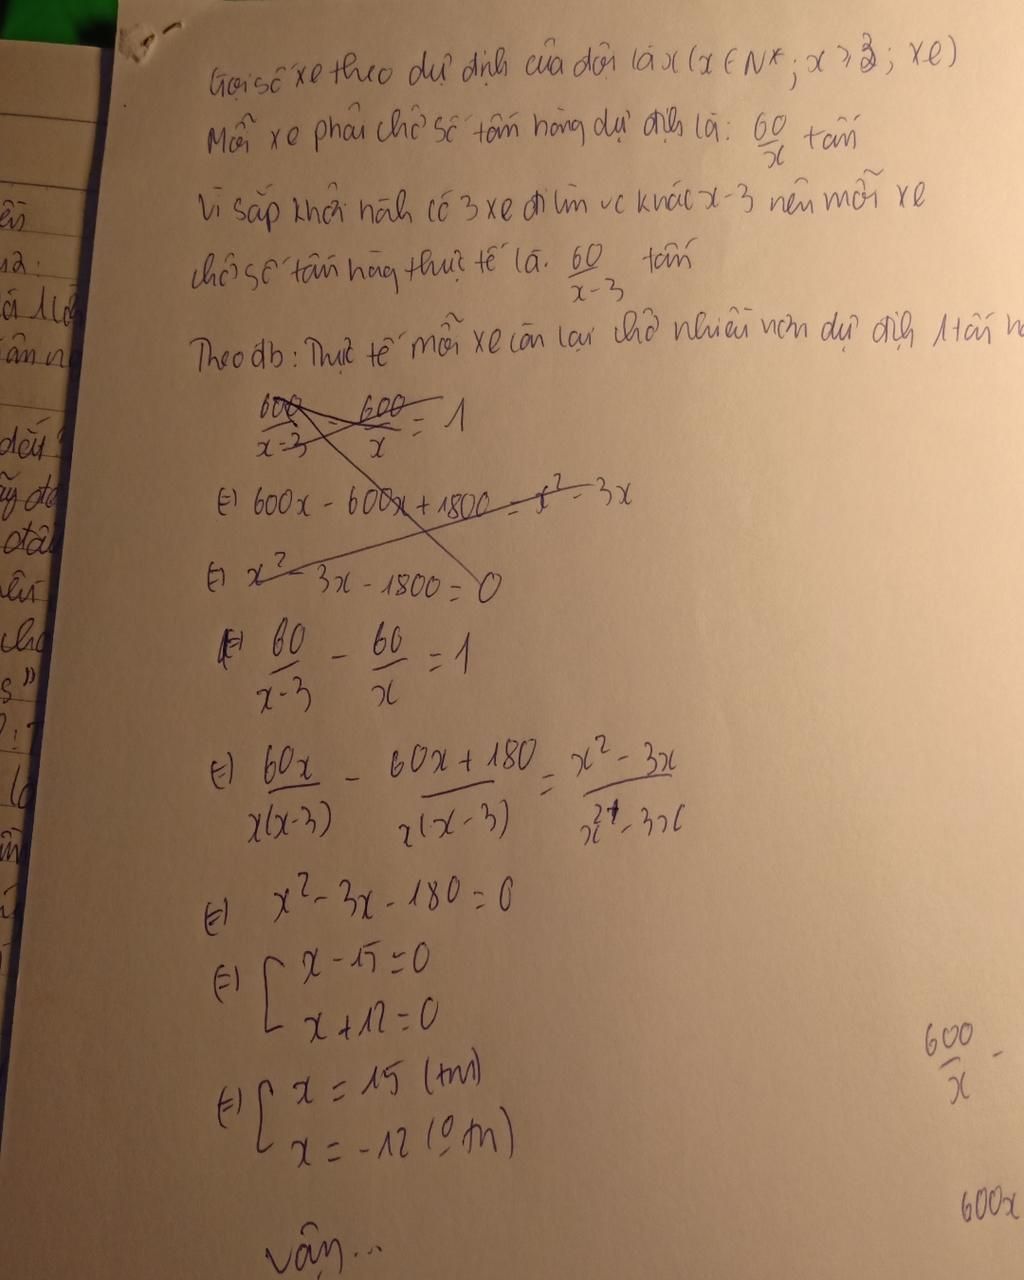 Gọi số xe theo dự định của đội là x (x ∈ N*; x > 3; xe)
Mỗi xe phải chở số tấn hàng dự định là: 60/x tấn
Vì sắp khởi hành có 3 xe đi làm vc khác x-3 nên mỗi xe
chở số tấn hàng thực tế là. 60/x-3 tấn
Theo đb: Thực tế mỗi xe còn lại chở nhiều hơn dự định 1 tấn
600/x-3 - 600/x = 1
(=) 600x - 600x + 1800 = x² - 3x
(=) x² - 3x - 1800 = 0
(=) 60/x-3 - 60/x = 1
(=) 60x/x(x-3) - 60x + 180/x(x-3) = x² - 3x/x² - 3x
(=) x² - 3x - 180 = 0
(=) [ x - 15 = 0
x + 12 = 0
(=) [ x = 15 (tm)
x = -12 (0 tm)
Vậy...
600/x -
600x